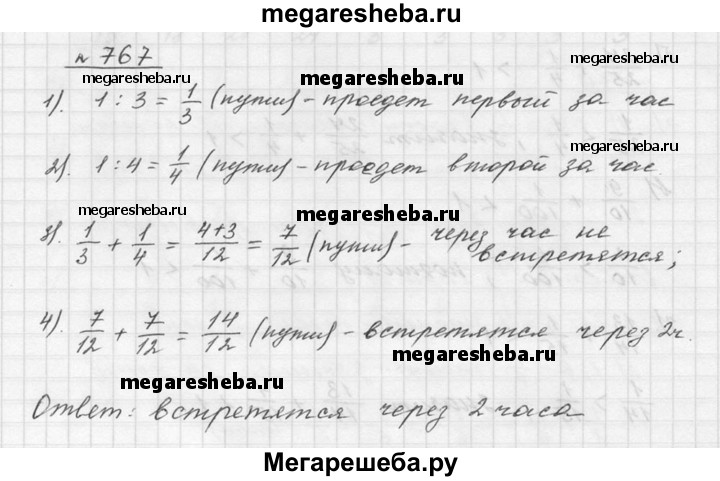 megaresheba.ru
№ 767
megaresheba.ru megaresheba.ru
1). 1 : 3 = 1/3 (пути) - проедет первый за час
megaresheba.ru
2). 1 : 4 = 1/4 (пути) - проедет второй за час.
megaresheba.ru
3). 1/3 + 1/4 = 4+3/12 = 7/12 (пути) - через час не
встретятся;
4). 7/12 + 7/12 = 14/12 (пути) - встретятся через 2ч.
megaresheba.ru
megaresheba.ru
Ответ: встретятся через 2 часа
Мегарешеба.ру